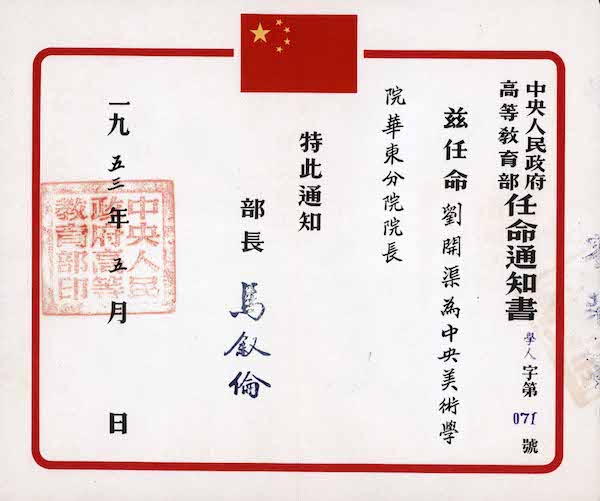 中央人民政府
高等教育部
任命通知書
學人字第071號
茲任命劉開渠為中央美術學
院華東分院院長
特此通知
部長 馬叙倫
一九五三年五月 日
中央人民
政府高等
教育部印